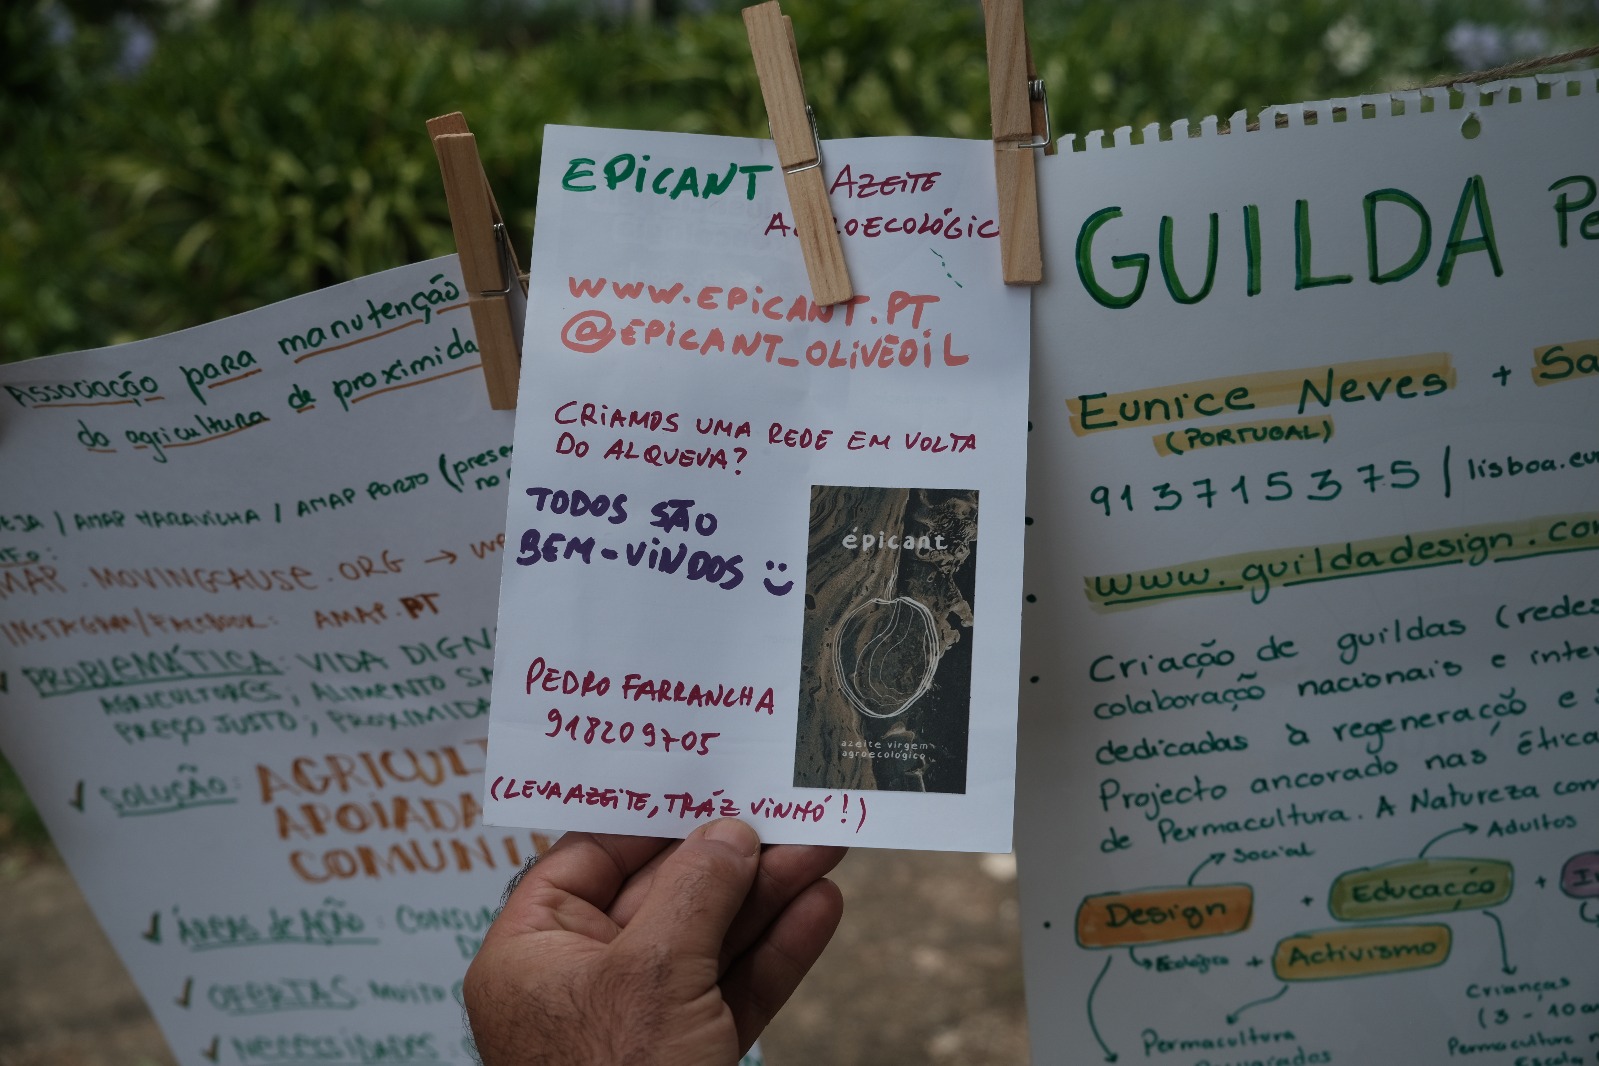 Associação para manutenção
da agricultura de proximida
/ AMAP MARAVILHA / AMAP PORTO (prese
no
MAP.MOVINGCAUSE.ORG → we
INSTAGRAM/FACEBOOK: AMAP.PT
PROBLEMÁTICA: VIDA DIGN
AGRICULTORES; ALIMENTO SA
PREÇO JUSTO; PROXIMIDA
SOLUÇÃO: AGRICULT
APOIADA
COMUNI
ÁREAS DE AÇÃO: CONSU
OFERTAS: MUITO
NECESSIDADES:
EPICANT AZEITE
AGROECOLÓGIC
WWW.EPICANT.PT
@EPICANT_OLIVEOIL
CRIAMOS UMA REDE EM VOLTA
DO ALQUEVA?
TODOS SÃO
BEM-VINDOS
épicant
azeite virgem
agroecológico
PEDRO FARRANCHA
918209705
(LEVA AZEITE, TRÁZ VINHÓ!)
GUILDA Pe
Eunice Neves + Sa
(PORTUGAL)
913715375 | lisboa.eu
www.guildadesign.co
Criação de guildas (redes
colaboração nacionais e inte
dedicadas à regeneração e
Projecto ancorado nas ética
de Permacultura. A Natureza com
Social Adultos
Design + Educação + In
Ecológico + Activismo
Crianças
(3 - 10 an
Permacultura
Permacultura n
Escola